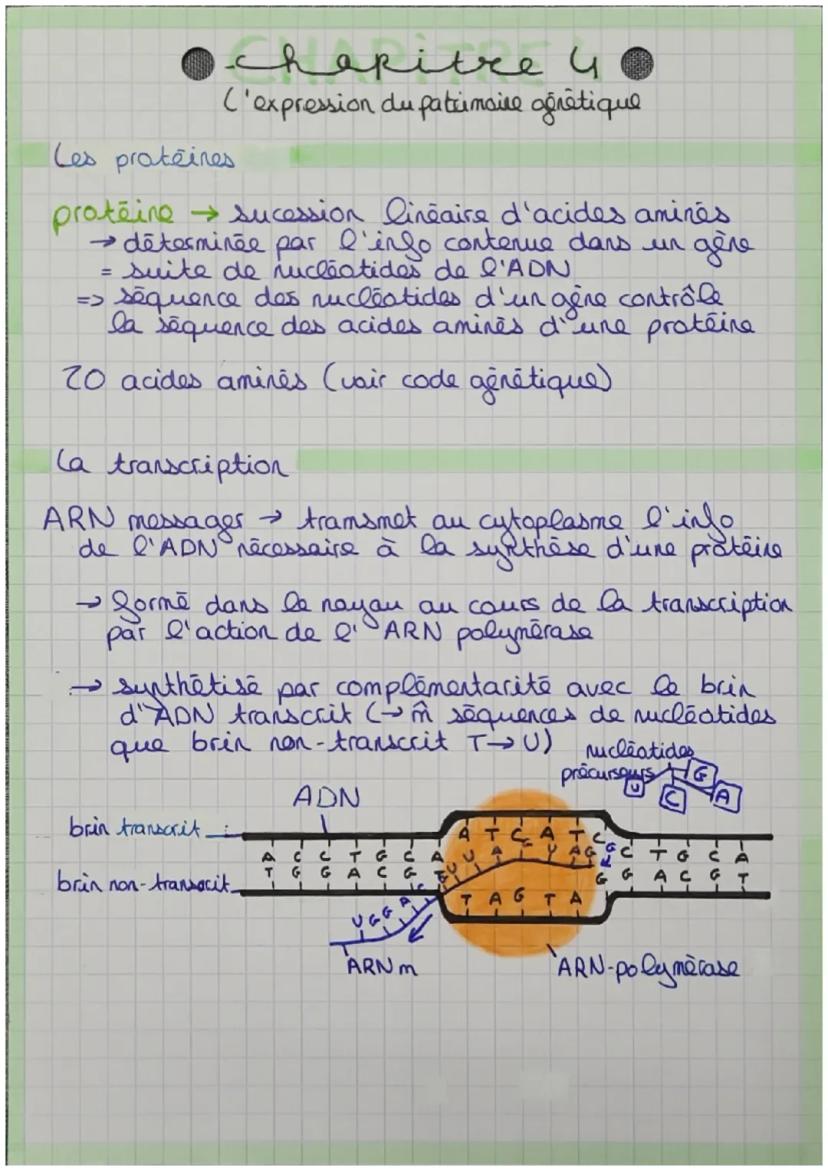 CHAPITRE 4
chapitre 4
L'expression du patrimoine génétique
Les protéines
protéine → sucession linéaire d'acides aminés
→ déterminée par l'info contenue dans un gène
= suite de nucléotides de l'ADN
=> séquence des nucléotides d'un gène contrôle
la séquence des acides aminés d'une protéine
20 acides aminés (voir code génétique)
La transcription
ARN messager → transmet au cytoplasme l'info
de l'ADN nécessaire à la synthèse d'une protéine
→ formé dans le noyau au cours de la transcription
par l'action de l'ARN polymérase
→ synthétisé par complémentarité avec le brin
d'ADN transcrit (→ m̂ séquences de nucléotides
que brin non-transcrit T→U)
nucléotides
précurseurs
U C G A
ADN
brin transcrit
A T C A T C
A C C T G C A
C T G C A
U U A G U A G G
brin non-transcrit
T G G A C G T
G G A C G T
T A G T A
U G G A C
ARNm
ARN-polymérase